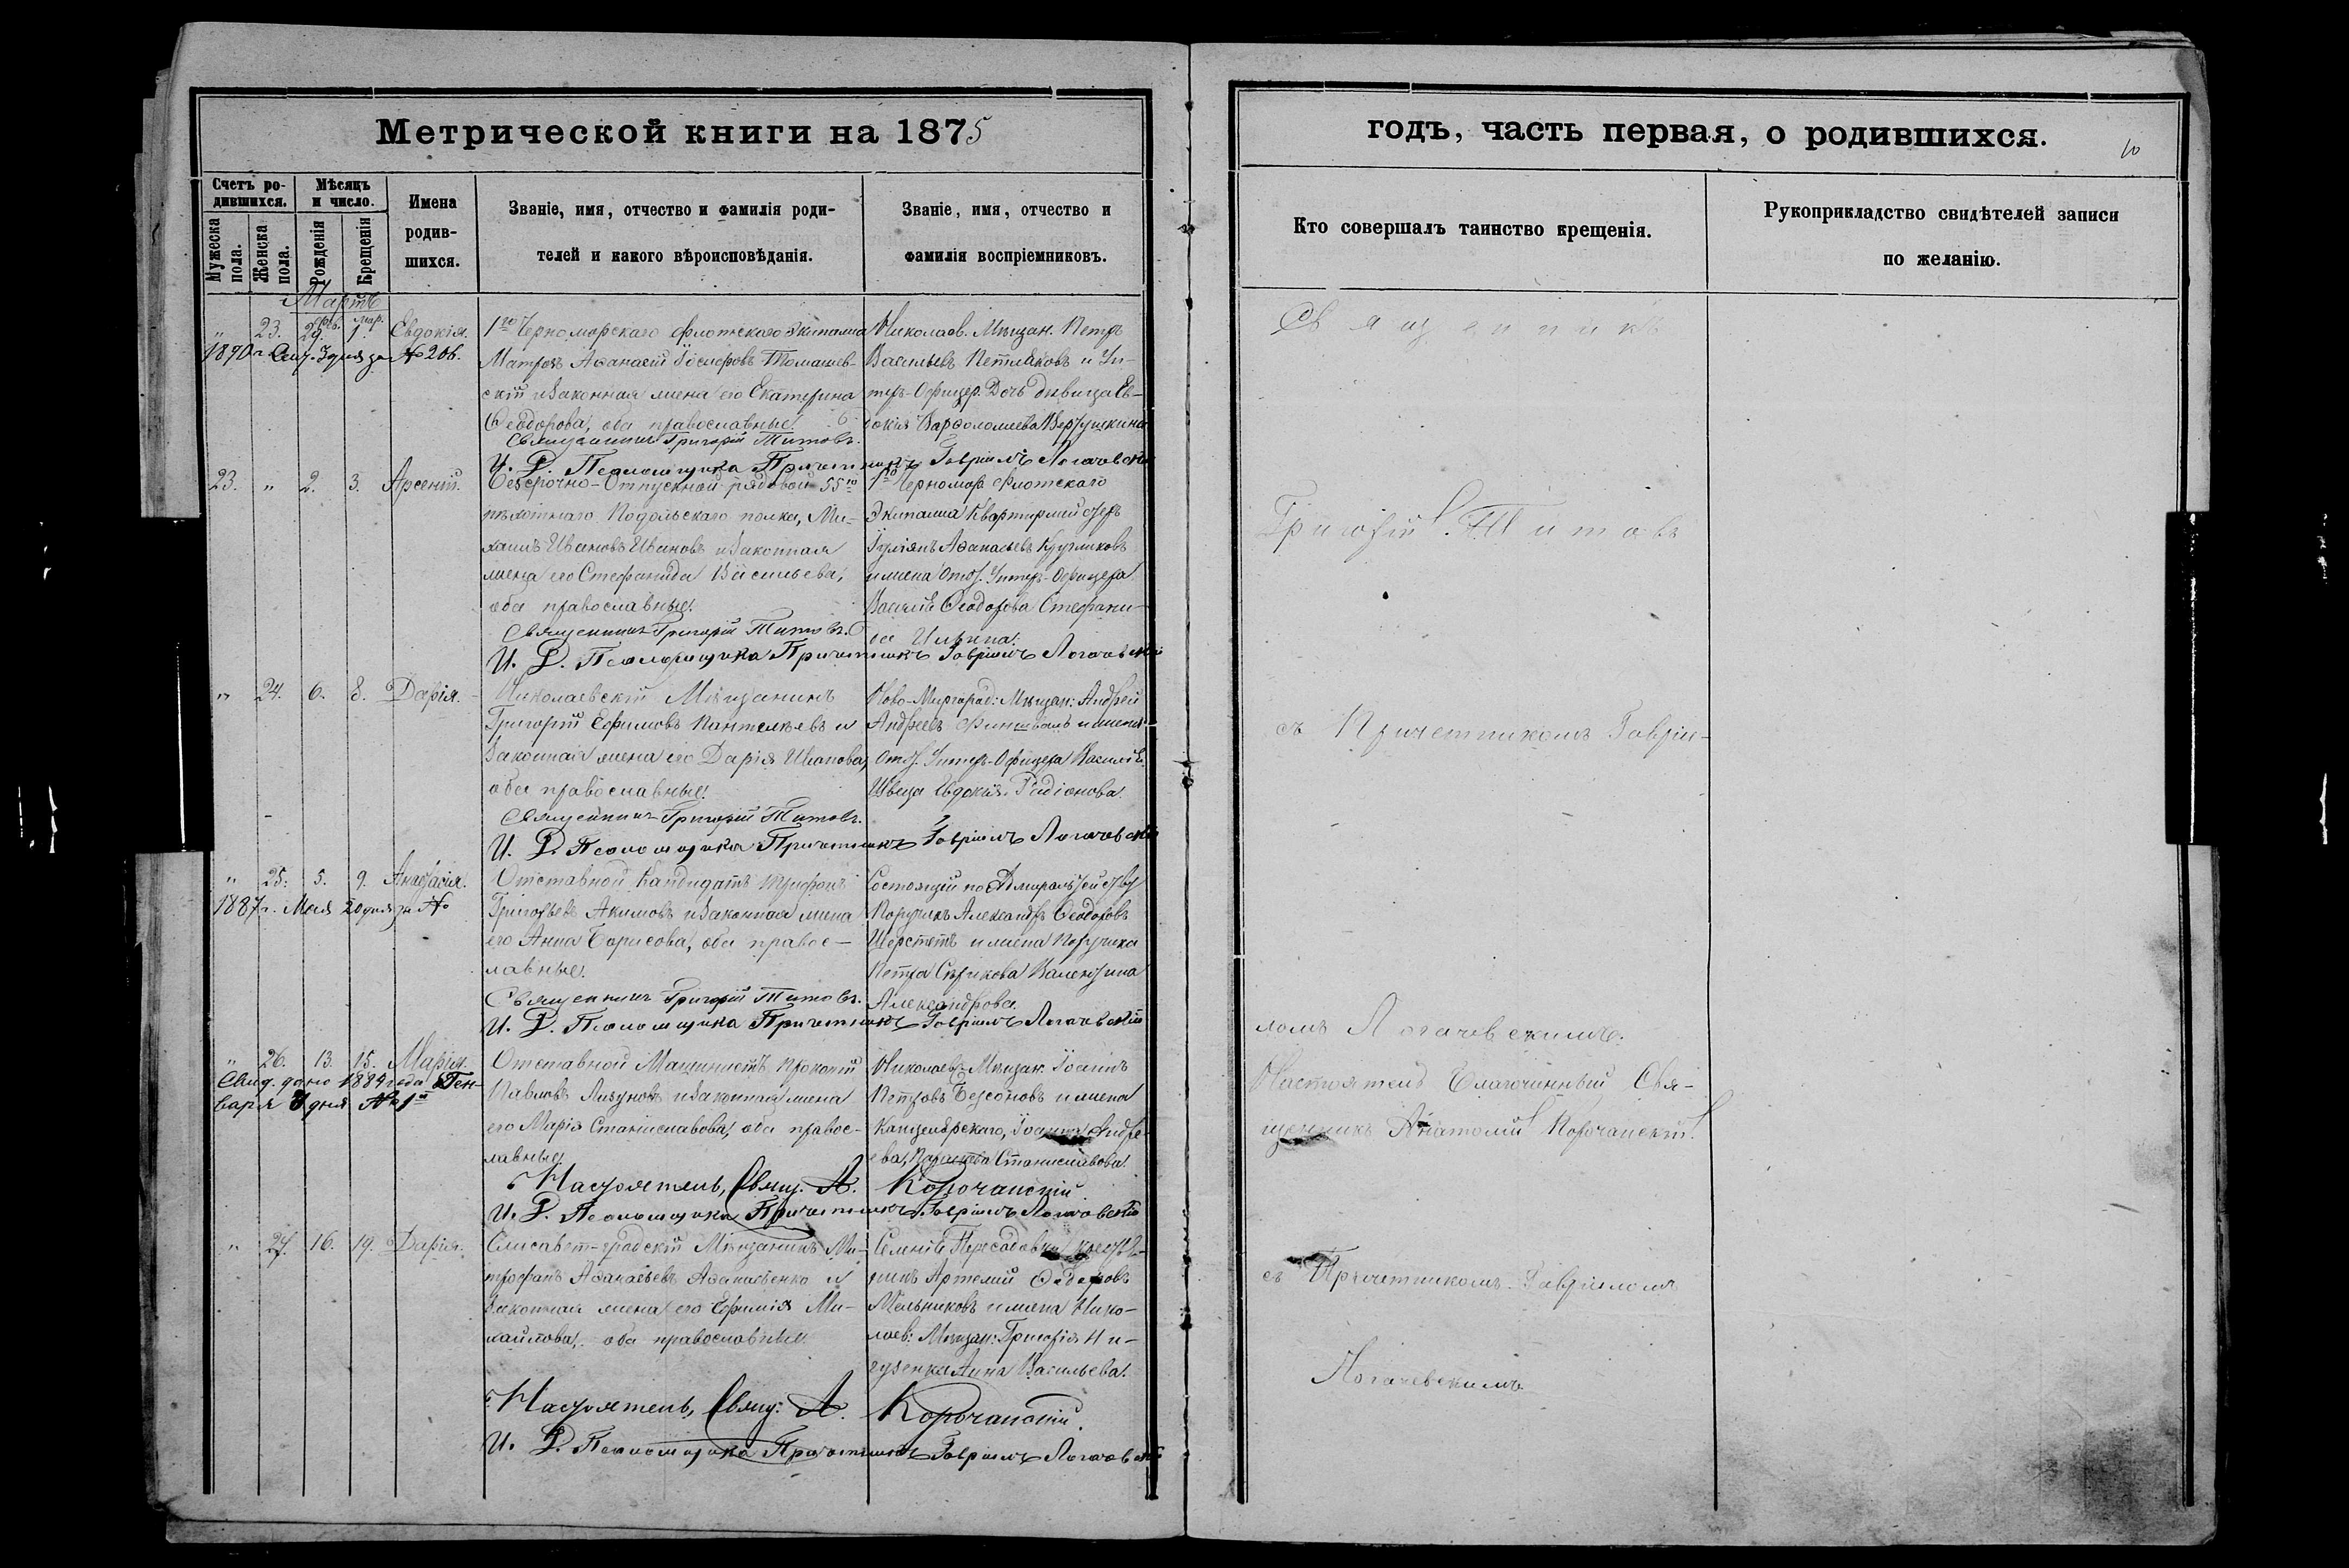 Метрической книги на 1875
Счетъ ро-
дившихся.
Мѣсяцъ
и число.
Имена
родив-
шихся.
Званіе, имя, отчество и фамилія роди-
телей и какого вѣроисповѣданія.
Званіе, имя, отчество и
фамилія воспріемниковъ.
Мужеска
пола.
Женска
пола.
Рожденія
Крещенія
Мартъ
Фев. Мар.
" 23. 29. 1. Евдокія.
1го Черноморскаго флотскаго Экипажа
Матросъ Аѳанасій Іосифовъ Томашев-
скій и законная жена его Екатерина
Ѳеодорова, оба православные.
Священникъ Григорій Титовъ.
И. Д. Псаломщика Причетникъ Гавріилъ Логачевскій
Николаев. Мѣщан. Петръ
Васильевъ Петляковъ и Ун-
теръ-Офицер. Дочь дѣвица Ев-
докія Варѳоломеева
1890 г. Сент. 3 дня за № 206.
23. " 2. 3. Арсеній.
Безсрочно-Отпускной рядовой 55го
пѣхотнаго Подольскаго полка, Ми-
хаилъ Ивановъ Ивановъ и законная
жена его Стефанида Васильева,
оба православные.
Священникъ Григорій Титовъ.
И. Д. Псаломщика Причетникъ Гавріилъ Логачевскій
1го Черномор. Флотскаго
Экипажа Квартирмейстеръ
Аѳанасьевъ
и жена Отст. Унтеръ-Офицера
Василія Ѳеодорова Стефани-
да Ильина.
" 24. 6. 8. Дарія.
Николаевскій Мѣщанинъ
Григорій Ефимовъ Пантелѣевъ и
законная жена его Дарія Иванова,
оба православные.
Священникъ Григорій Титовъ.
И. Д. Псаломщика Причетникъ Гавріилъ Логачевскій
Ново-Миргород: Мѣщан: Андрей
Андреевъ и жена
Отст. Унтеръ-Офицера Василія
Швеца Евдокія Радіонова.
" 25. 5. 9. Анастасія.
1887 г. Мая 20 дня за №
Отставной Кандидатъ Трифонъ
Григорьевъ Акимовъ и законная жена
его Анна Борисова, оба правос-
лавные.
Священникъ Григорій Титовъ.
И. Д. Псаломщика Причетникъ Гавріилъ Логачевскій
Состоящій по Адмиралтейству
Поручикъ Александръ Ѳеодоровъ
Шерстетъ и жена Поручика
Петра Сѣрикова Валентина
Александрова.
" 26. 13. 15. Марія.
Свид. дано 1884 года Ген-
варя 8 дня № 1й
Отставной Машинистъ Прокопій
Павловъ Лизуновъ и законная жена
его Марія Станиславова, оба правос-
лавные.
Настоятель, Свящ. А. Корочанскій.
И. Д. Псаломщика Причетникъ Гавріилъ Логачевскій
Николаев. Мѣщан. Іоаннъ
Петровъ Безсоновъ и жена
Канцелярскаго, Іоанна Андре-
ева, Станиславова.
" 27. 16. 19. Дарія.
Елисавет-градскій Мѣщанинъ Ми-
трофанъ Аѳанасьевъ Аѳанасьенко и
законная жена его Ефимія Ми-
хайлова, оба православные.
Настоятель, Свящ: А. Корочанскій.
И. Д. Псаломщика Причетникъ Гавріилъ Логачевскій
Селенія Пересадовки крестья-
нинъ Артемій Ѳедоровъ
Мельниковъ и жена Нико-
лаев: Мѣщан: Григорія Ни-
Анна Васильева.
годъ, часть первая, о родившихся.
10
Кто совершалъ таинство крещенія.
Рукоприкладство свидѣтелей записи
по желанію.
Священникъ
Григорій Титовъ
съ Причетникомъ Гавріи-
ломъ Логачевскимъ.
Настоятель Благочинный Свя-
щенникъ Анатолій Корочанскій.
съ Причетникомъ Гавріиломъ
Логачевскимъ